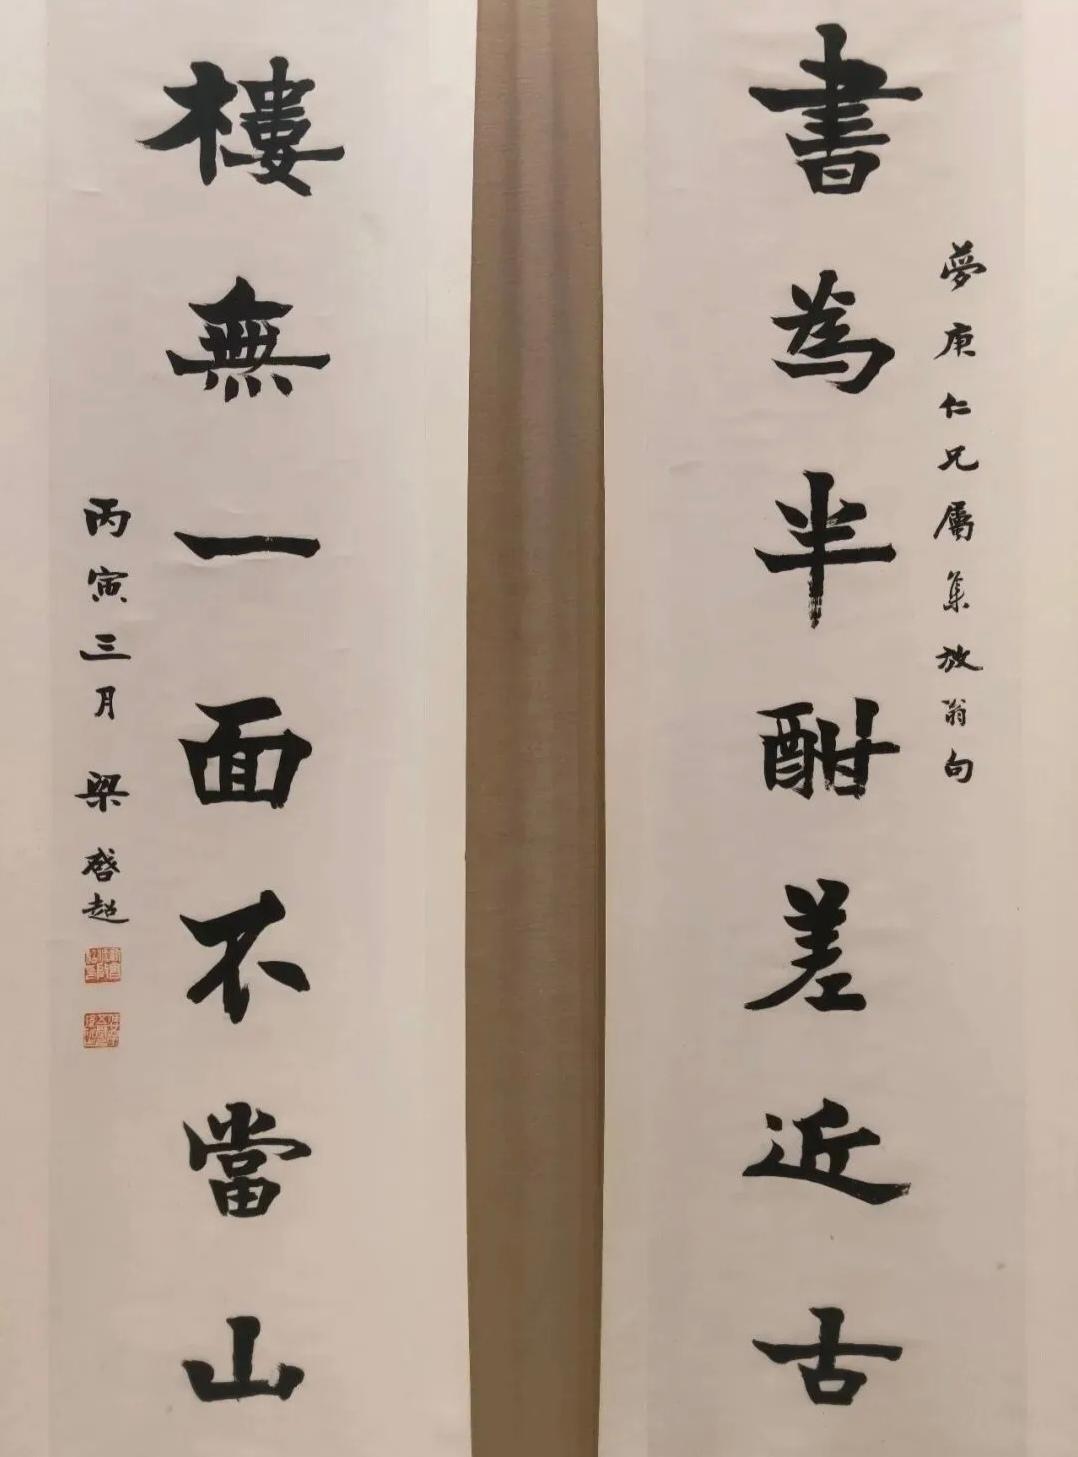 夢庚仁兄屬集放翁句
書為半酣差近古
樓無一面不當山
丙寅三月 梁啓超